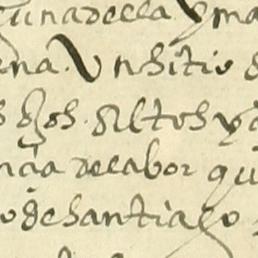 una della Yma
ena. Vn sitio
s ssos. Altos y
ncia de labor qu
o de santiago